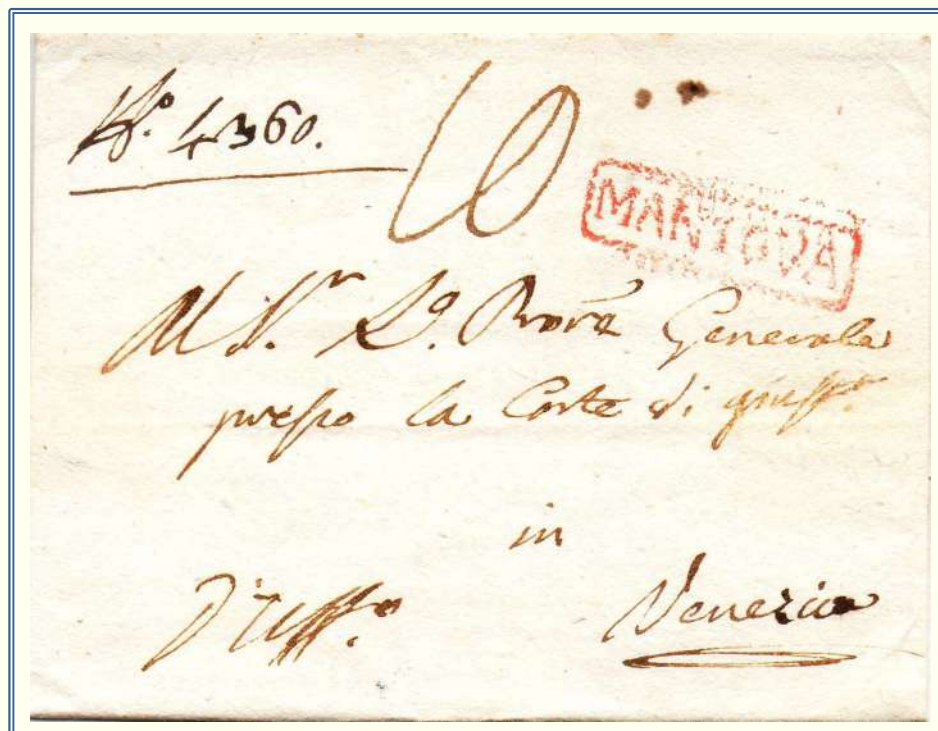 N.º 4360.
10
MANTOVA
Al S.r R.º Proc.re Generale
presso la Corte di giust.a
in
D'Uff.º
Venezia